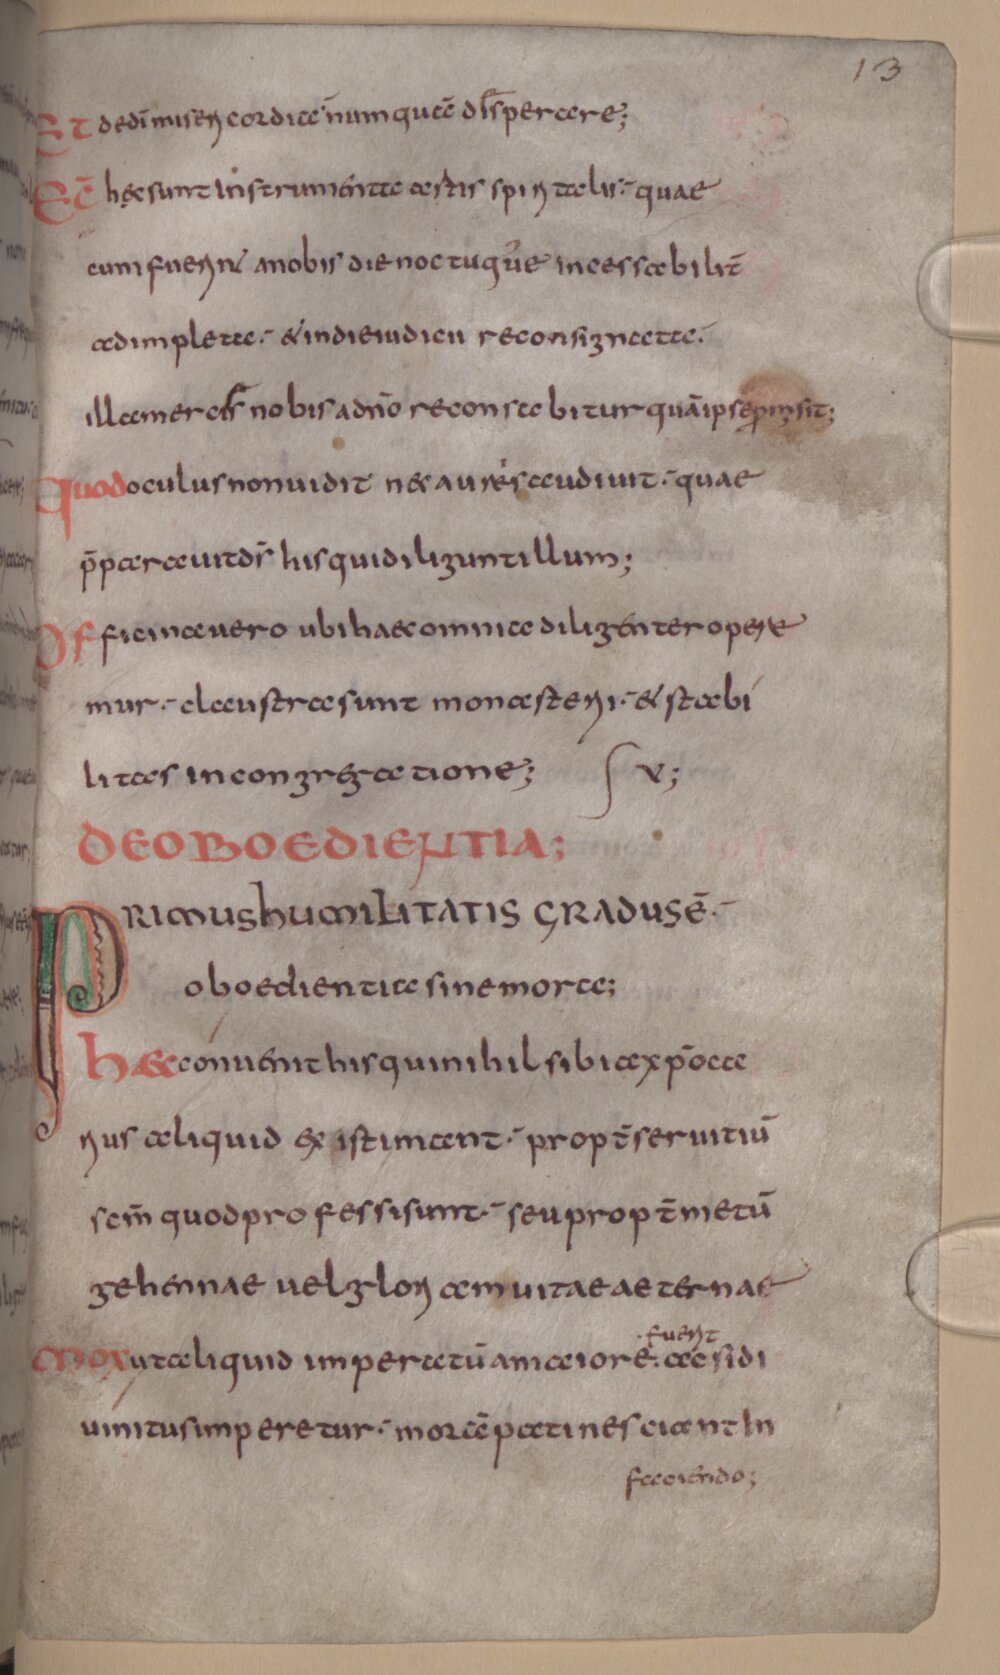 13
Et dedī misericordia numquā dispercere;
Ec̄ hęc sunt instrumenta artis spiritalis·̄ quae
cum fuerint a nobis die noctuque incessabilit̄
adimpleta·̄ & in die iudicii reconsignata·̄
illa merces nobis a dn̄o reconsabitur quā ipse promisit;
Quod oculus non uidit nec auris audiuit·̄ quae
p̄parauit ds̄ his qui diligunt illum;
Officina uero ubi haec omnia diligenter opere
mur·̄ claustra sunt monasterii·̄ & stabi
litas in congregatione; v;
DE OBOEDIENTIA;
PRIMUS HUMILITATIS GRADUS Ē·̄
oboedientia sine mora;
haec conuenit his qui nihil sibi a xp̄o ca
rius aliquid existimant·̄ propt̄ seruitiū
scm̄ quod professi sunt·̄ seu propt̄ metū
gehennae uel gloriam uitae aeternae
Mox ut aliquid imperatū a maiore·̄ fuerit ac si di
uinitus imperetur·̄ morā pati nesciant in
faciendo;